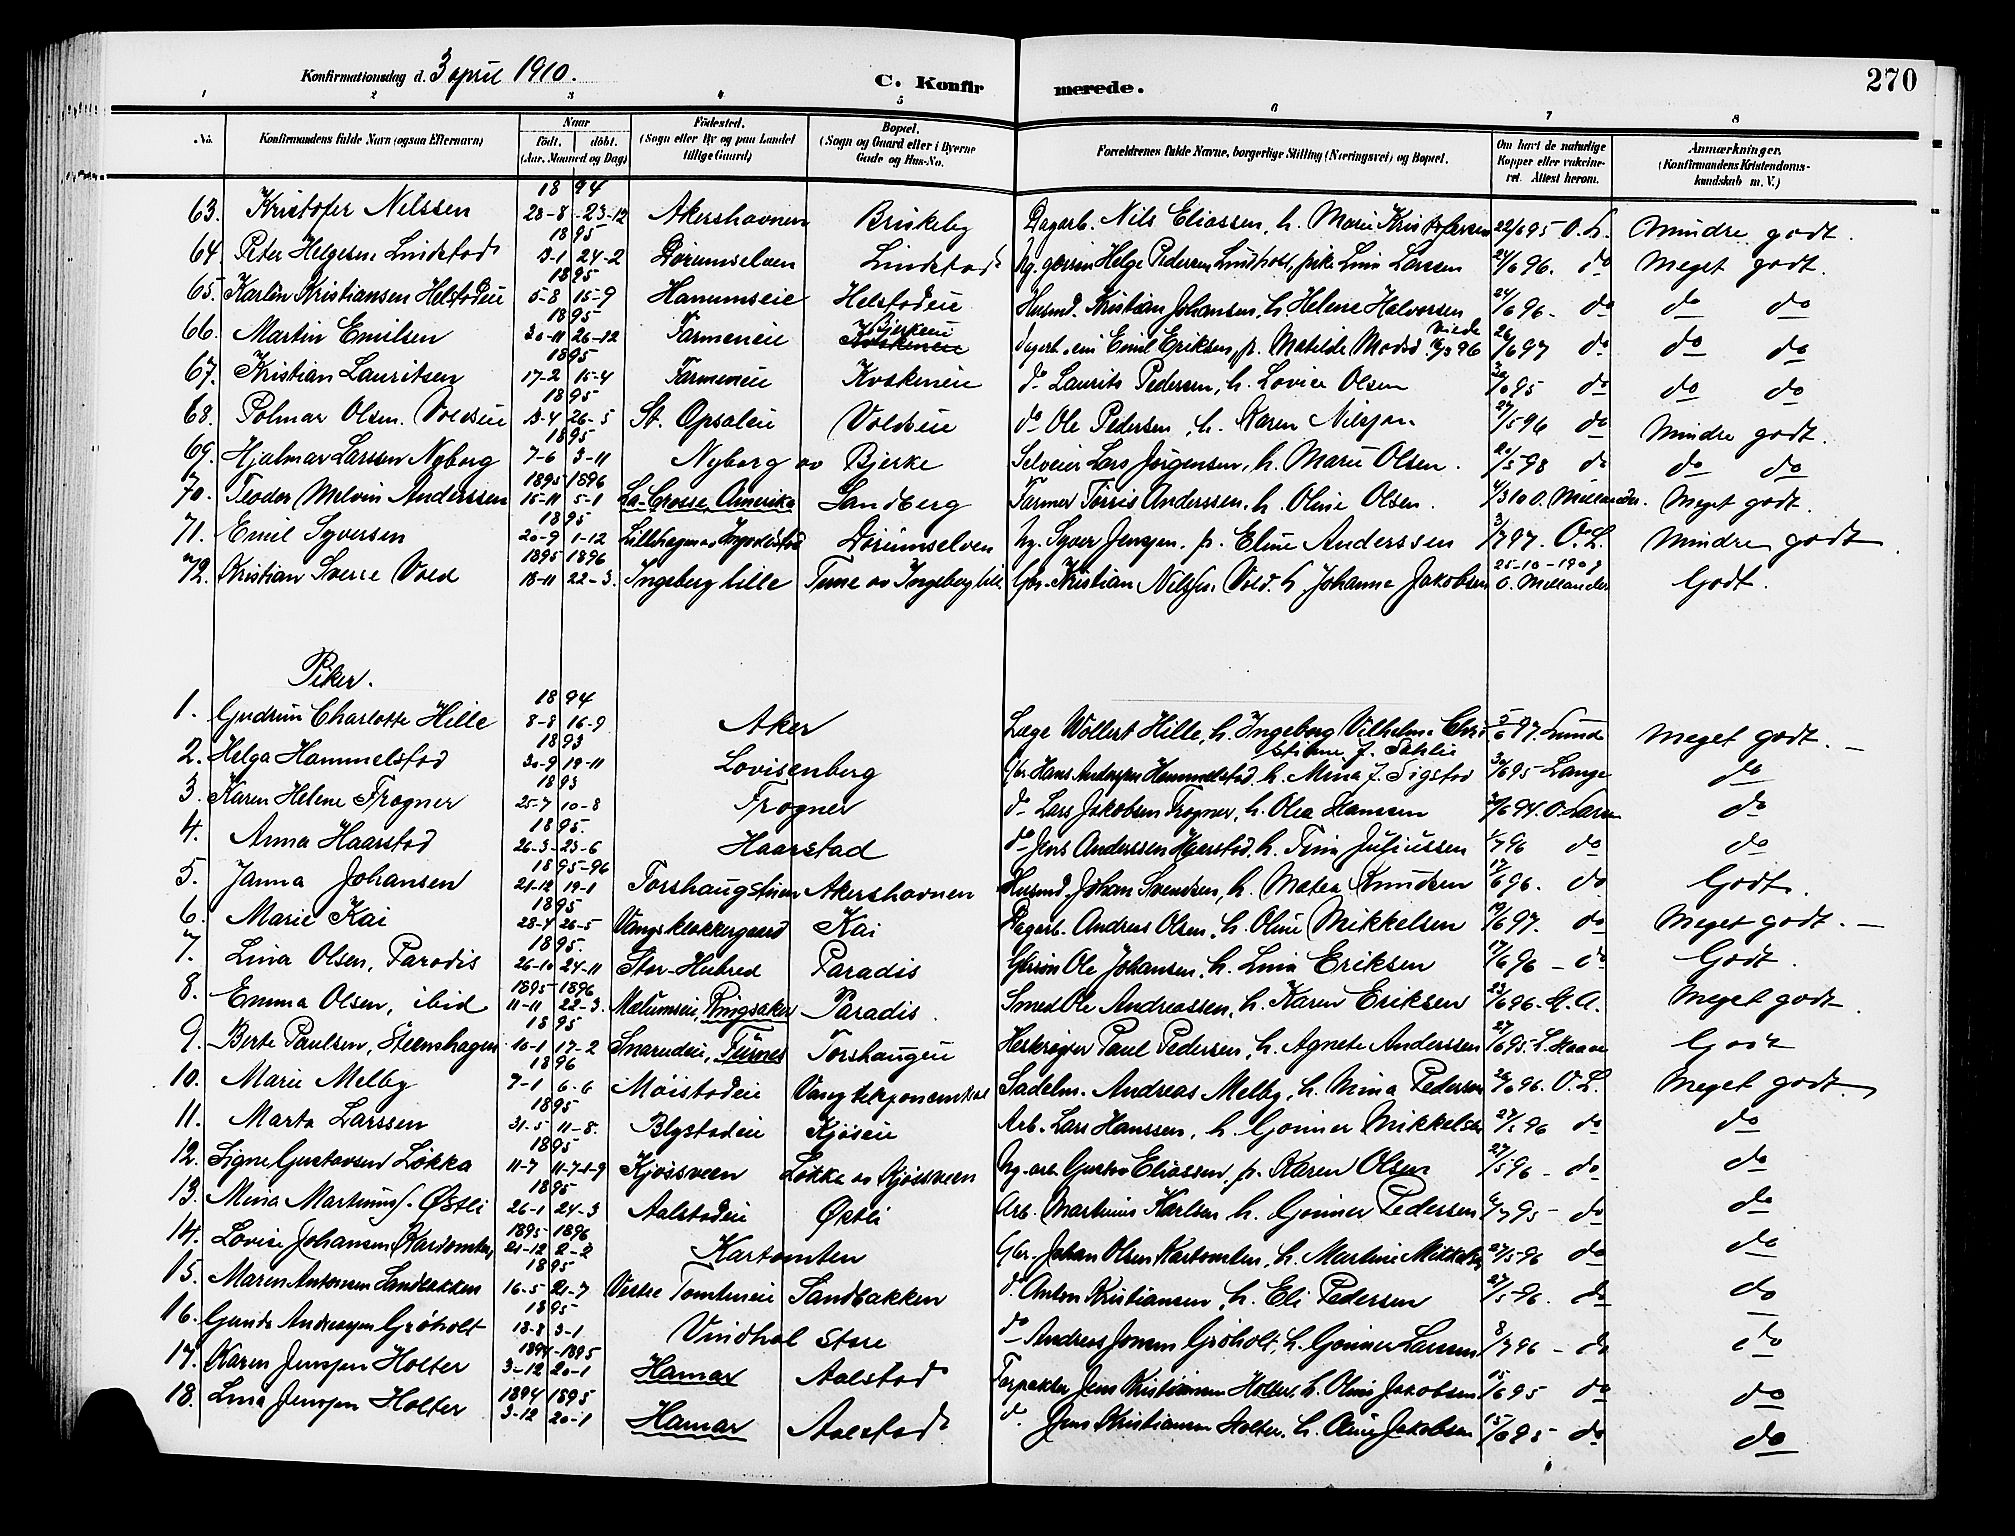 Konfirmationsdag d. 3 april 1910.
C. Konfirmerede.
270
1 2 3 4 5 6 7 8
No. Konfirmandens fulde Navn (ogsaa Efternavn) Naar Födt, döbt. (Aar, Maaned og Dag) Födested. (Sogn eller By og paa Landet tillige Gaard) Bopæl. (Sogn og Gaard eller i Byerne Gade og Hus-No. Forældrenes fulde Navne, borgerlige Stilling (Næringsvei) og Bopæl. Om havt de naturlige Kopper eller vakcineret. Attest herom. Anmærkninger. (Konfirmandens Kristendomskundskab m. V.)
1894
63. Kristofer Nilssen 28-8 23-12 Akershavnen Briskeby Dagarb. Nils Eliassen, h. Marie Kristofersen 22/6 95 O. L. Mindre godt.
1895
64. Peter Helgesen Lindstad 13-1 24-2 Dørumselven Lindstad Helge Pedersen pike Lina Larssen 24/6 96. do Meget godt.
1895
65. Karlin Kristiansen Helstadeie 5-8 15-9 Hanumseie Helstadeie Husmd. Kristian Johansen, h. Helene Halvorsen 24/6 96 - do do do
1895
66. Martin Emilsen 30-11 26-12 Farmeneie Bjerkeeie Emil Eriksen, p. Matilde 26/6 97 do do do
1895
67. Kristian Lauritsen 17-2 15-4 Farmeneie Kvskeneie do Laurits Pedersen, h. Lovise Olsen 30/6 95 do do do
1895
68. Polmar Olsen Voldseie 13-4 26-5 St. Opsaleie Voldseie do Ole Pedersen, h. Karen Nilssen 27/5 96 do Mindre godt.
1895
69. Hjalmar Larssen Nyborg 7-6 3-11 Nyborg av Bjerke Selveier Lars Jørgensen, h. Marie Olsen. 20/5 98 do do do
1895 1896
70. Teodor Melvin Anderssen 15-11 5-1 La-Crosse, Amerika Sandberg Farmer Tørris Anderssen, h. Oline Olsen. 4/3 10 O. Mellander. Meget godt.
1895
71. Emil Syversen 20-9 1-12 Dørumselven Ug. Syver Jenssen, p. Eline Anderssen 3/7 97. O. L. Mindre godt
1895 1896
72. Kristian Sverre Vold 18-11 22-3. Ingeberg lille Tune av Ingeberg lille Gbr. Kristian Nilssen Vold. h. Johanne Jakobsen 25-10-1909 O. Mellander Godt.
Piker.
1894
1. Gudrun Charlotte Hille 8-8 16-9 Aker Læge Wollert Hille, h. Ingeborg Vilhelm. Christiane f. Sahlie 5/6 97. Lunde Meget godt. -
1893
2. Helga Hammelstad 30-9 19-11 Lovisenberg Gbr Hans Andersen Hammelstad, h. Mina f. Sigstad 30/6 95 Lange do
1893
3. Karen Helene Frogner 25-7 10-8 Frogner do Lars Jakobsen Frogner, h. Olea Hanssen 2/6 94. O. Larsen do
1895.
4. Anna Haarstad 26-3 23-6 Haarstad do Jens Anderssen Haarstad, h. Tina Juliussen 1/7 96 do do
1895-96
5. Janna Johansen 21-12 19-1 Torshaugstuen Akershavnen Husmd. Johan Svendsen, h. Matea Knudsen 17/6 96. do Godt.
1895
6. Marie Kai 28-4 26-5 Vangs klokkergaard Kai Dagarb. Andreas Olsen, h. Oline Mikkelsen 19/6 97. do Meget godt. -
1895.
7. Lina Olsen, Paradis 26-10 24-11 Stor-Huhred Paradis Ole Johansen, h. Lina Eriksen 17/6 96 - do Godt.
1895-1896
8. Emma Olsen, ibid 11-11 22-3. Mælumseie, Ringsaker Paradis. Smed Ole Andreassen, h. Karen Eriksen 23/6 96. G. A. Meget godt.
1895
9. Berte Paulsen, Steenshagen 10-1 17-2 Snarudeie, Furnes Torshaugeie Paul Pedersen, h. Agnete Anderssen 27/6 95. L. Haave Godt
1896
10. Marie Melby 7-1 6-6 Möistadeie Vang Sadelm. Andreas Melby, h. Mina Pedersen 26/6 96. O. L. Meget godt.
1895
11. Marta Larssen 31-5 11-8. Blystadeie Kjöseie Arb. Lars Hanssen, h. Gonner Mikkelsen 27/5 96 do do
1895
12. Signe Gustavsen Løkka 11-7 1-9 Kjössveen Løkka av Kjössveen Ug. arb. Gustav Eliassen, p. Karen Olsen 27/5 96 - do do
1895
13. Mina Martinius. Østli 26-1 24-3 Aalstadeie Østli Arb. Martinius Karlsen, h. Gonner Pedersen 6/7 95 - do do
1895-1896
14. Lovise Johansen Kartomten 21-12 2-2 Kartomten Gbr. Johan Olsen Kartomten, h. Martine Mikkelsen 27/5 96 do do
1895
15. Maren Antonsen Sandbakken 16-5 21-7 Vestre Tomteneie Sandbakken do Anton Kristiansen, h. Eli Pedersen 27/5 96. do do
1895
16. Gunda Andreassen Gröholt 18-8 3-1 Vindhol Store do Andreas Jonsen Gröholt, h. Gonner Larssen 8/7 96 - do do
1894-1895
17. Karen Jenssen Holter 3-12 20-1 Hamar Aalstad Forpakter Jens Kristiansen Holter, h. Oline Jakobsen 15/6 95 do do
1894 1895
18. Lina Jenssen Holter 3-12 20-1 Hamar Aalstad do. Jens Kristiansen Holter, h. Oline Jakobsen 15/6 95 do do